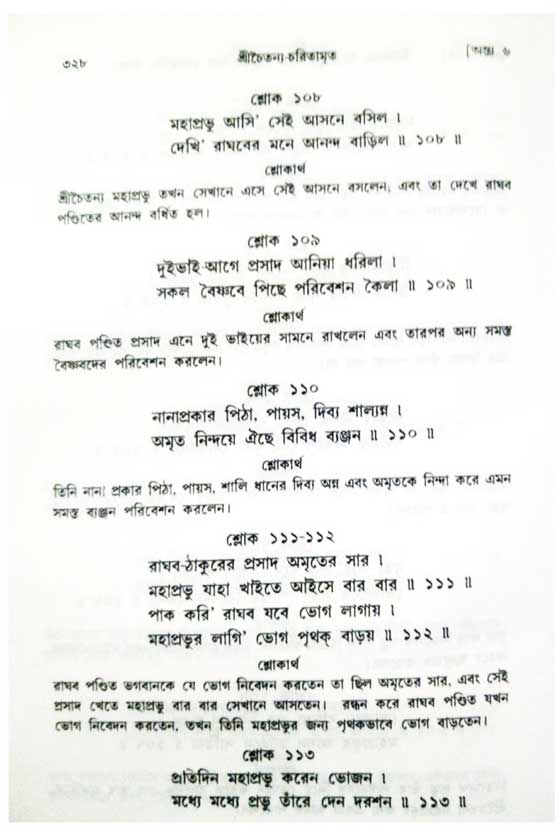 ৩২৮
শ্রীচৈতন্য-চরিতামৃত
[অন্ত্য ৬
শ্লোক ১০৮
মহাপ্রভু আসি' সেই আসনে বসিল ।
দেখি' রাঘবের মনে আনন্দ বাড়িল ॥ ১০৮ ॥
শ্লোকার্থ
শ্রীচৈতন্য মহাপ্রভু তখন সেখানে এসে সেই আসনে বসলেন, এবং তা দেখে রাঘব
পণ্ডিতের আনন্দ বর্ধিত হল।
শ্লোক ১০৯
দুইভাই-আগে প্রসাদ আনিয়া ধরিলা ।
সকল বৈষ্ণবে পিছে পরিবেশন কৈলা ॥ ১০৯ ॥
শ্লোকার্থ
রাঘব পণ্ডিত প্রসাদ এনে দুই ভাইয়ের সামনে রাখলেন এবং তারপর অন্য সমস্ত
বৈষ্ণবদের পরিবেশন করলেন।
শ্লোক ১১০
নানাপ্রকার পিঠা, পায়স, দিব্য শাল্যন্ন ।
অমৃত নিন্দয়ে ঐছে বিবিধ ব্যঞ্জন ॥ ১১০ ॥
শ্লোকার্থ
তিনি নানা প্রকার পিঠা, পায়স, শালি ধানের দিব্য অন্ন এবং অমৃতকে নিন্দা করে এমন
সমস্ত ব্যঞ্জন পরিবেশন করলেন।
শ্লোক ১১১-১১২
রাঘব-ঠাকুরের প্রসাদ অমৃতের সার ।
মহাপ্রভু যাহা খাইতে আইসে বার বার ॥ ১১১ ॥
পাক করি' রাঘব যবে ভোগ লাগায় ।
মহাপ্রভুর লাগি' ভোগ পৃথক্ বাড়য় ॥ ১১২ ॥
শ্লোকার্থ
রাঘব পণ্ডিত ভগবানকে যে ভোগ নিবেদন করতেন তা ছিল অমৃতের সার, এবং সেই
প্রসাদ খেতে মহাপ্রভু বার বার সেখানে আসতেন। রন্ধন করে রাঘব পণ্ডিত যখন
ভোগ নিবেদন করতেন, তখন তিনি মহাপ্রভুর জন্য পৃথকভাবে ভোগ বাড়তেন।
শ্লোক ১১৩
প্রতিদিন মহাপ্রভু করেন ভোজন ।
মধ্যে মধ্যে প্রভু তাঁরে দেন দরশন ॥ ১১৩ ॥